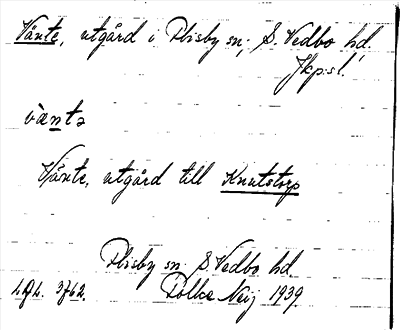 Vänte, utgård i Flisby sn, S. Vedbo hd.
Jkp:s l.
vänte
Vänte, utgård till Knutstorp
Flisby sn S. Vedbo hd
1939.
3762.